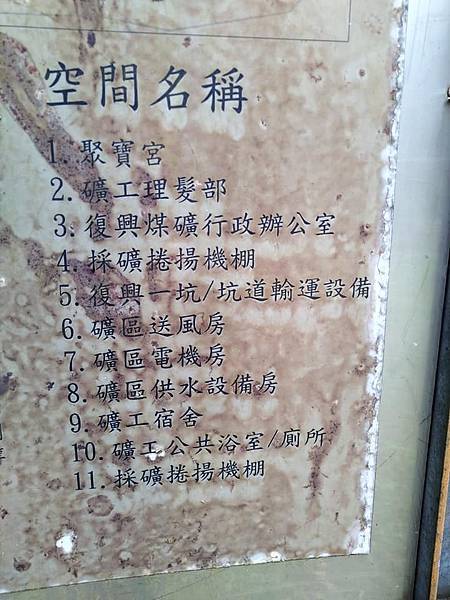 空間名稱
1. 聚寶宮
2. 礦工理髮部
3. 復興煤礦行政辦公室
4. 採礦捲揚機棚
5. 復興一坑/坑道輸運設備
6. 礦區送風房
7. 礦區電機房
8. 礦區供水設備房
9. 礦工宿舍
10. 礦工公共浴室/廁所
11. 採礦捲揚機棚